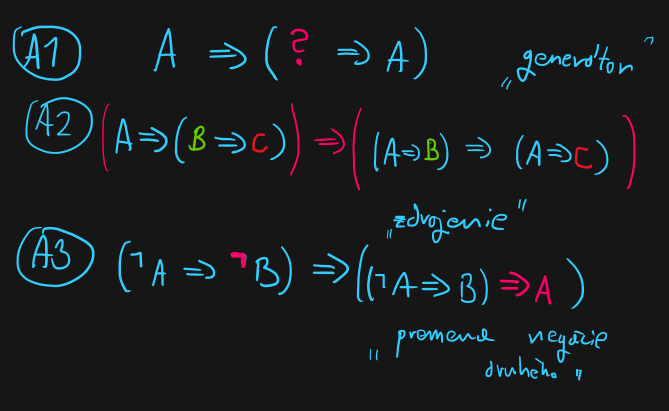 A1 A ⇒ (? ⇒ A) „generátor"
A2 (A⇒(B⇒C))⇒((A⇒B) ⇒ (A⇒C))
„zdrojenie"
A3 (¬A ⇒ ¬B) ⇒((¬A⇒B)⇒A)
„premena negácie
druhého"